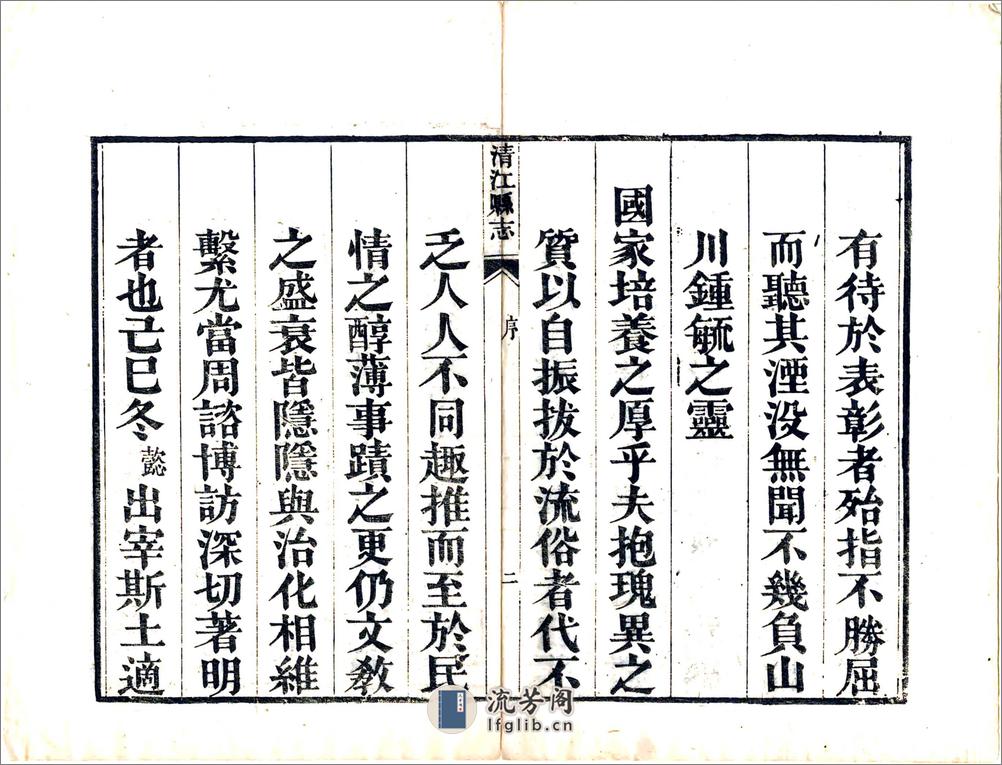 有待於表彰者殆指不勝屈
而聽其湮没無聞不幾負山
川鍾毓之靈
國家培養之厚乎夫抱瑰異之
質以自振拔於流俗者代不
清江縣志
序
二
乏人人不同趣推而至於民
情之醇薄事蹟之更仍文敎
之盛衰皆隱隱與治化相維
繫尤當周諮博訪深切著明
者也己巳冬懿出宰斯土適
流芳阁
lfglib.cn